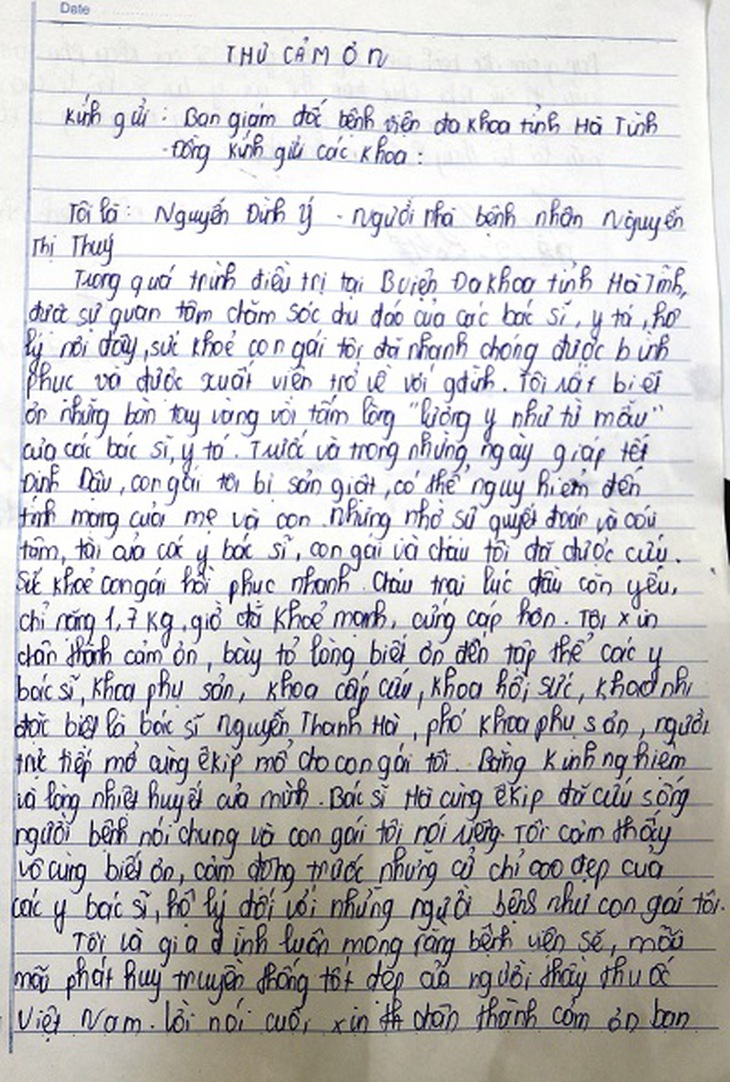 Date
THƯ CẢM ƠN
Kính gửi : Ban giám đốc bệnh viện đa khoa tỉnh Hà Tĩnh
- Đồng kính gửi các khoa :
Tôi là : Nguyễn Đình Ý - Người nhà bệnh nhân Nguyễn
Thị Thuý
Trong quá trình điều trị tại Bviện Đa khoa tỉnh Hà Tĩnh,
được sự quan tâm chăm sóc chu đáo của các bác sĩ, y tá, hộ
lý nơi đây, sức khoẻ con gái tôi đã nhanh chóng được bình
phục và được xuất viện trở về với gđình. Tôi rất biết
ơn những bàn tay vàng với tấm lòng "lương y như từ mẫu"
của các bác sĩ, y tá. Trước và trong những ngày giáp tết
Đinh Dậu, con gái tôi bị sản giật, có thể nguy hiểm đến
tính mạng của mẹ và con. Nhưng nhờ sự quyết đoán và cái
tâm, tài của các y bác sĩ, con gái và cháu tôi đã được cứu.
Sức khoẻ con gái hồi phục nhanh. Cháu trai lúc đầu còn yếu,
chỉ nặng 1,7 kg, giờ đã khoẻ mạnh, cứng cáp hơn. Tôi xin
chân thành cảm ơn, bày tỏ lòng biết ơn đến tập thể các y
bác sĩ, khoa phụ sản, khoa cấp cứu, khoa hồi sức, khoa nhi
đặc biệt là bác sĩ Nguyễn Thanh Hà, phó khoa phụ sản, người
trực tiếp mổ cùng êkip mổ cho con gái tôi. Bằng kinh nghiệm
và lòng nhiệt huyết của mình. Bác sĩ Hà cùng êkip đã cứu sống
người bệnh nói chung và con gái tôi nói riêng. Tôi cảm thấy
vô cùng biết ơn, cảm động trước những cử chỉ cao đẹp của
các y bác sĩ, hộ lý đối với những người bệnh như con gái tôi.
Tôi và gia đình luôn mong rằng bệnh viện sẽ, mãi
mãi phát huy truyền thống tốt đẹp của người thầy thuốc
Việt Nam. Lời nói cuối, xin chân thành cảm ơn ban